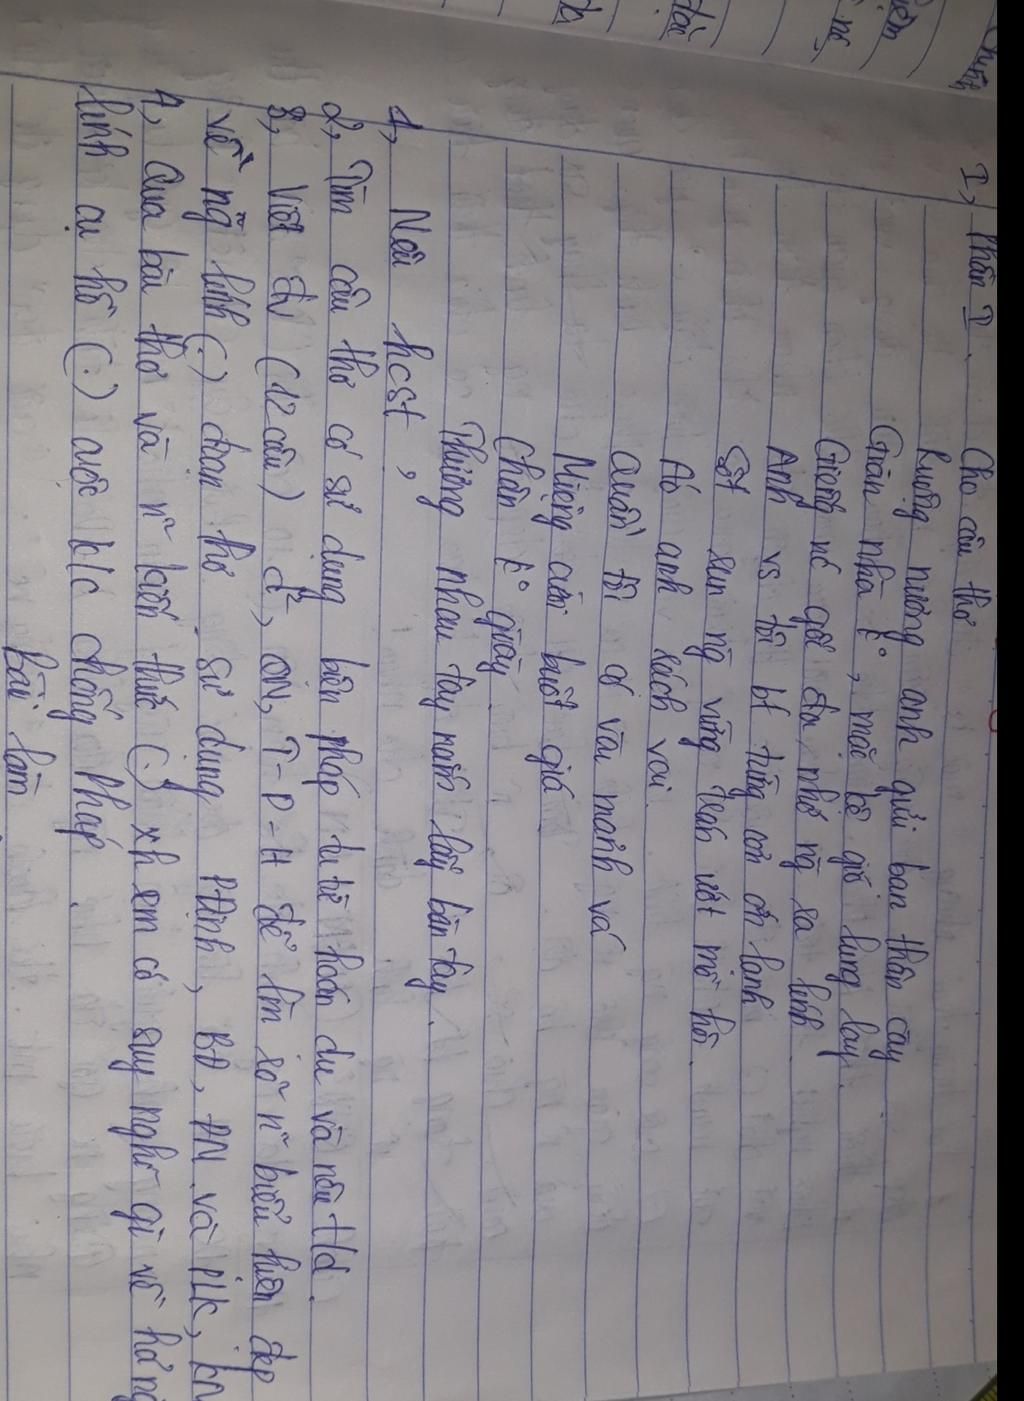 I, Phần I. Cho câu thơ
Ruộng nương anh gửi bạn thân cày
Gian nhà k°, mặc kệ gió lung lay.
Giếng nc gốc đa nhớ ng ra lính.
Anh vs tôi bt từng cơn ớn lạnh
Sốt run ng vừng trán ướt mồ hôi.
Áo anh rách vai
Quần tôi có vài mảnh vá
Miệng cười buốt giá
Chân k° giày
Thương nhau tay nắm lấy bàn tay.
1, Nêu hcst,
2, Tìm câu thơ có sử dụng biện pháp tu từ hoán dụ và nêu t/d.
3, Viết đv (12 câu) , T-P-H để làm rõ n~ biểu hiện đẹp
về ng lính (.) đoạn thơ sử dụng PĐịnh, BĐ, PN và PLK,
4, Qua bài thơ và n~ kiến thức (.) xh em có suy nghĩ gì về h/ả ng
lính cụ hồ (.) cuộc k/c chống Pháp.
Bài làm